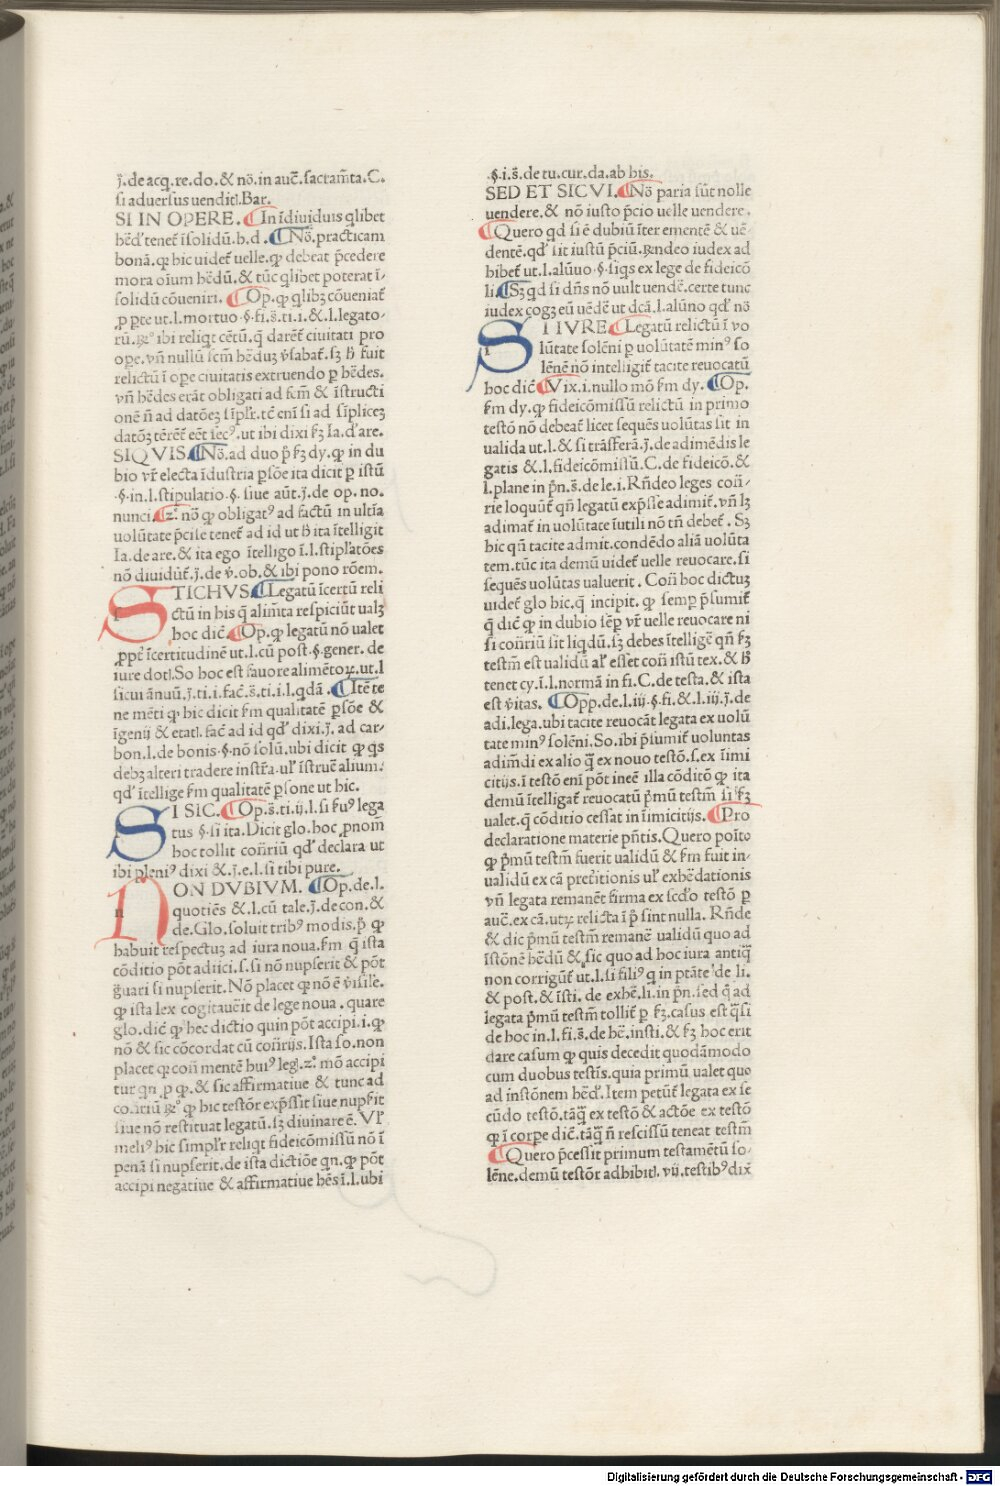 j̄. de acq. re. do. & nō. in auc̄. sacram̄ta. C.
si aduersus uenditī. Bar.
SI IN OPERE. ¶ In īdiuiduis qlibet
bēd' tenet̄ īsolidū. h. d. ¶ Nō. practicam
bonā. qꝫ hic uidet̄ uelle. qꝫ debeat p̄cedere
mora oīum hēdū. & tūc qlibet poterat ī-
solidū cōueniri. ¶ Op. qꝫ qlibꝫ cōueniat̄
ꝓ ꝑte ut. l. mortuo. §. fi. s̄. ti. i. & l. legato-
rū. Rº ibi reliqt̄ cētū. q̄ daret̄ ciuitati pro
ope. vn̄ nullū scm̄ hēduꝫ v̄sabat̄. sꝫ h̄ fuit
relictū ī ope ciuitatis extruendo ꝑ hēdes.
vn̄ hēdes erāt obligati ad fcm̄ & īstructi
onē n̄ ad datōeꝫ sīpl'r. tē enī si ad sīpliceꝫ
datōꝫ tēret̄ eēt sec⁹. ut ibi dixi fꝫ Ia. d'are.
SI QVIS. ¶ Nō. ad duo p̄ fꝫ dy. qꝫ in du
bio vr̄ electa īdustria ꝑsōe ita dicit ꝑ istū
.§. in. l. stipulatio. §. siue aūt. j̄. de op. no.
nunci. ¶ zº. nō qꝫ obligat⁹ ad factū in ultīa
uolūtate p̄cise tenet̄ ad id ut h̄ ita ītelligit
Ia. de are. & ita ego ītelligo ī. l. stipl'atōes
nō diuidūt̄. j̄. de v̄. ob. & ibi pono rōem.
STICHVS. ¶ Legatū īcertū reli
ctū in his q̄ alim̄ta respiciūt ualꝫ
hoc dic̄. ¶ Op. qꝫ legatū nō ualet
ꝓpt̄ īcertitudinē ut. l. cū post. §. gener. de
iure dotī. So hoc est fauore alimētoꝝ. ut. l
sicui ānuū. j̄. ti. i. fac̄. s̄. ti. i. l. qdā. ¶ Itē te
ne mēti qꝫ hic dicit fm qualitatē ꝑsōe &
īgenij & etatī. fac̄ ad id qd' dixi. j̄. ad car-
bon. l. de bonis. §. nō solū. ubi dicit qꝫ qs
debꝫ alteri tradere instr̄a. ul' īstruē alium.
qd' ītellige fm qualitatē ꝑsone ut hic.
SI SIC. ¶ Op. s̄. ti. ij. l. si fu⁹ lega
tus §. si ita. Dicit glo. hoc ꝓnom̄
hoc tollit con̄riū qd' declara ut
ibi pleni⁹ dixi & j̄. e. l. si tibi pure.
NON DVBIVM. ¶ Op. de. l.
quotiēs & . l. cū tale. j̄. de con. &
de. Glo. soluit trib⁹ modis. p̄ qꝫ
habuit respectuꝫ ad iura noua. fm q̄ ista
cōditio pōt adijci. s. si nō nupserit & pōt
guari si nupserit. Nō placet qꝫ nō ē v̄sile.
qꝫ ista lex cogitauēit de lege noua. quare
glo. dic̄ qꝫ hec dictio quin pōt accipi. i. qꝫ
nō & sic cōcordat cū con̄rijs. Ista so. non
placet qꝫ con̄ mentē hui⁹ leg. zº. mō accipi
tur qn̄ ꝓ qꝫ. & sic affirmatiue & tunc ad
con̄riū Rº qꝫ hic testōr exp̄ssit siue nupser̄it
siue nō restituat legatū. sꝫ diuinare ē. Vl'
meli⁹ hic simpl'r reliqt̄ fideicōmissū nō ī
penā si nupserit. de ista dictiōe qn. qꝫ pōt
accipi negatiue & affirmatiue hēs ī. l. ubi
.§. i. s̄. de tu. cur. da. ab his.
SED ET SICVI. ¶ Nō paria sūt nolle
uendere. & nō iusto p̄cio uelle uendere.
¶ Quero qd si ē dubiū īter ementē & uē-
dentē. qd' sit iustū p̄ciū. Rn̄deo iudex ad
hibet̄ ut. l. alūuo. §. siqs ex lege de fideicō
li. ¶ Sꝫ qd si dn̄s nō uult uendē. certe tunc
iudex cogꝫ eū uēdē ut dcā. l. alūno qd' nō
SI IVRE. ¶ Legatū relictū ī vo
lūtate solēni ꝑ uolūtatē min⁹ so
lēnē nō intelligit̄ tacite reuocatū
hoc dic̄ ¶ Vix. i. nullo mō fm dy. ¶ Op.
fm dy. qꝫ fideicōmissū relictū in primo
testō nō debeat̄ licet sequēs uolūtas sit in
ualida ut. l. & si trāsferā. j̄. de adimēdis le
gatis & . l. fideicōmissū. C. de fideicō. &
l. plane in p̄n. s̄. de le. i. Rn̄deo leges con̄-
rie loquūt̄ qn̄ legatū exp̄sse adimit̄. vn̄ lꝫ
adimat̄ in uolūtate iutili nō tn̄ debet̄. Sꝫ
hic qn̄ tacite admit. condēdo aliā uolūta
tem. tūc ita demū uidet̄ uelle reuocare. si
sequēs uolūtas ualuerit. Con̄ hoc dictuꝫ
uidet̄ glo hic. q̄ incipit. qꝫ semꝑ p̄sumit̄
q̄ dic̄ qꝫ in dubio sēꝑ vr̄ uelle reuocare ni
si con̄riū sit liqdū. sꝫ debes ītelligē qn̄ fꝫ
testm̄ est ualidū al' esset con̄ istū tex. & h̄
tenet cy. ī. l. normā in fi. C. de testa. & ista
est v̄itas. ¶ Opp. de. l. iij. §. fi. & . l. iij. j̄. de
adi. lega. ubi tacite reuocāt̄ legata ex uolū
tate min⁹ solēni. So. ibi p̄sumit̄ uoluntas
adim̄di ex alio q̄ ex nouo testō. s. ex īimi
citijs. ī testō enī pōt ineē illa cōditō qꝫ ita
demū ītelligat̄ reuocatū p̄mū testm̄ si fꝫ
ualet. q̄ cōditio cessat in īimicitijs. ¶ Pro
declaratione materie pn̄tis. Quero poīto
qꝫ p̄mū testm̄ fuerit ualidū & fm fuit in-
ualidū ex cā pret̄itionis ul' exhēdationis
vn̄ legata remanēt firma ex scdo testō ꝑ
auc̄. ex cā. utꝝ relicta ī p̄ sint nulla. Rn̄de
& dic p̄mū testm̄ remanē ualidū quo ad
īstōnē hēdū & sic quo ad hoc iura antiq̄
non corrigūt̄ ut. l. si fili⁹ q in ptāte de li.
& post. & īsti. de exhē. li. in p̄n. sed q̄ ad
legata p̄mū testm̄ tollit̄ ꝑ fꝫ. casus est q̄si
de hoc in. l. fi. s̄. de hē. insti. & fꝫ hoc erit
dare casum qꝫ quis decedit quodāmodo
cum duobus testīs. quia primū ualet quo
ad instōnem hēd'. Item petūt̄ legata ex se
cūdo testō. tāq̄ ex testō & actōe ex testō
qꝫ ī corpe dic̄. tāq̄ n̄ rescissū teneat testm̄
¶ Quero p̄cessit primum testamētū so-
lēne. demū testōr adhibitī. vij. testib⁹ dix̄
Digitalisierung gefördert durch die Deutsche Forschungsgemeinschaft - DFG